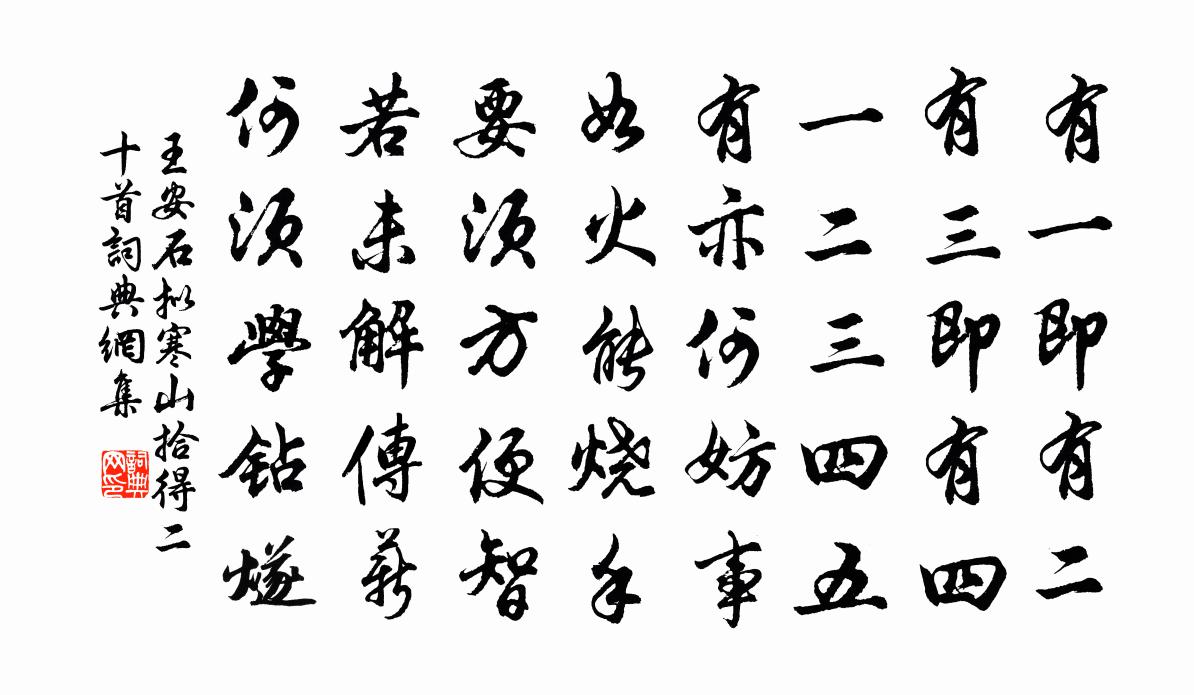 有一即有二
有三即有四
一二三四五
有亦何妨事
如火能烧手
要须方便智
若未解傳薪
何须學鉆燧
王安石拟寒山拾得二
十首詞典網集
詞典
网印